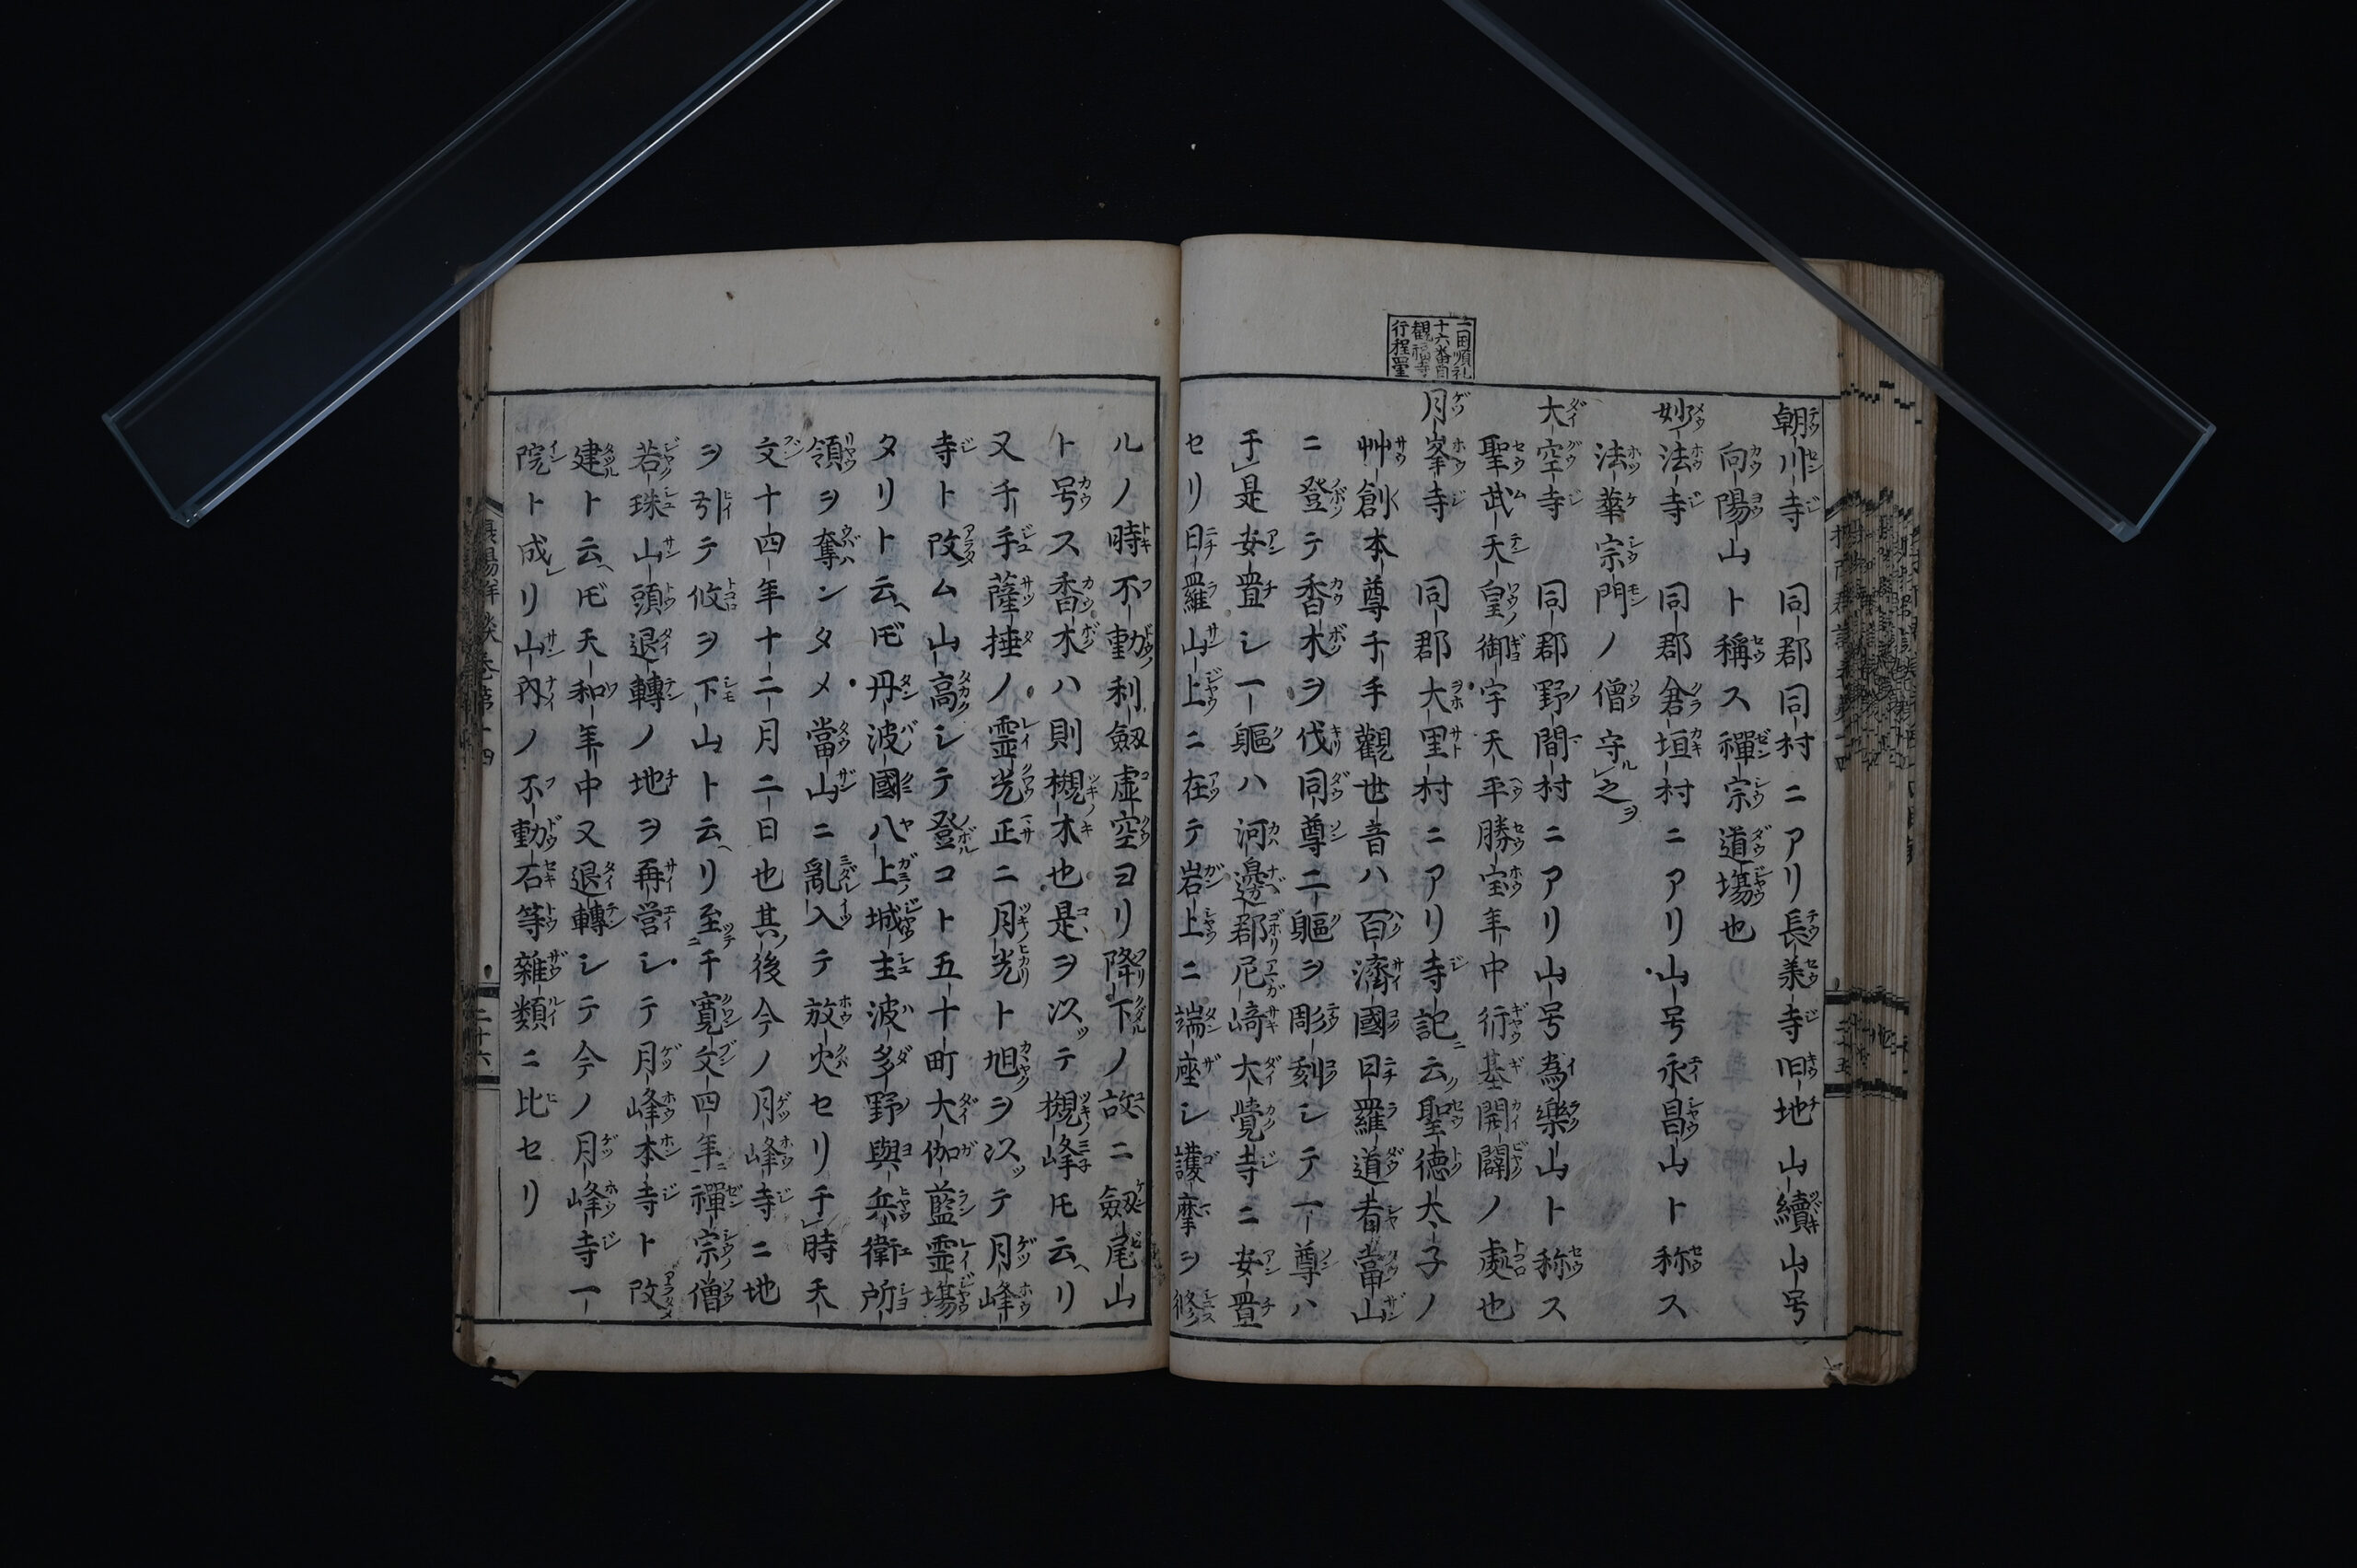 朝川寺 同郡同村ニアリ長養寺旧地山續山号
向陽山ト稱ス禪宗道塲也
妙法寺 同郡倉垣村ニアリ山号永昌山ト称ス
法華宗門ノ僧守之
大空寺 同郡野間村ニアリ山号為樂山ト称ス
聖武天皇御宇天平勝宝年中行基開闢ノ處也
一囯順礼
十六番目
観福寺
行程畧
月峯寺 同郡大里村ニアリ寺記云聖德大子ノ
艸創本尊千手觀世音ハ百濟國日羅道者當山
ニ登テ香木ヲ伐同尊二軀ヲ彫刻シテ一尊ハ
于是安置シ一軀ハ河邊郡尼﨑大覺寺ニ安置
セリ日羅山上ニ在テ岩上ニ端座シ護摩ヲ修
ルノ時不動利劔虚空ヨリ降下ノ故ニ劔尾山
ト号ス香木ハ則槻木也是ヲ以テ槻峰モ云リ
又千手薩捶ノ霊光正ニ月光ト旭ヲ以テ月峰
寺ト改ム山高シテ登コト五十町大伽藍霊塲
タリト云𪜈丹波國八上城主波多野與兵衛所
領ヲ奪ンタメ當山ニ亂入テ放火セリ于時天
文十四年十二月二日也其後今ノ月峰寺ニ地
ヲ引テ攸ヲ下山ト云リ至于寛文四年禪宗僧
若珠山頭退轉ノ地ヲ再営シテ月峰本寺ト改
建ト云𪜈天和年中又退轉シテ今ノ月峰寺一
院ト成リ山內ノ不動石等雜類ニ比セリ
二十六